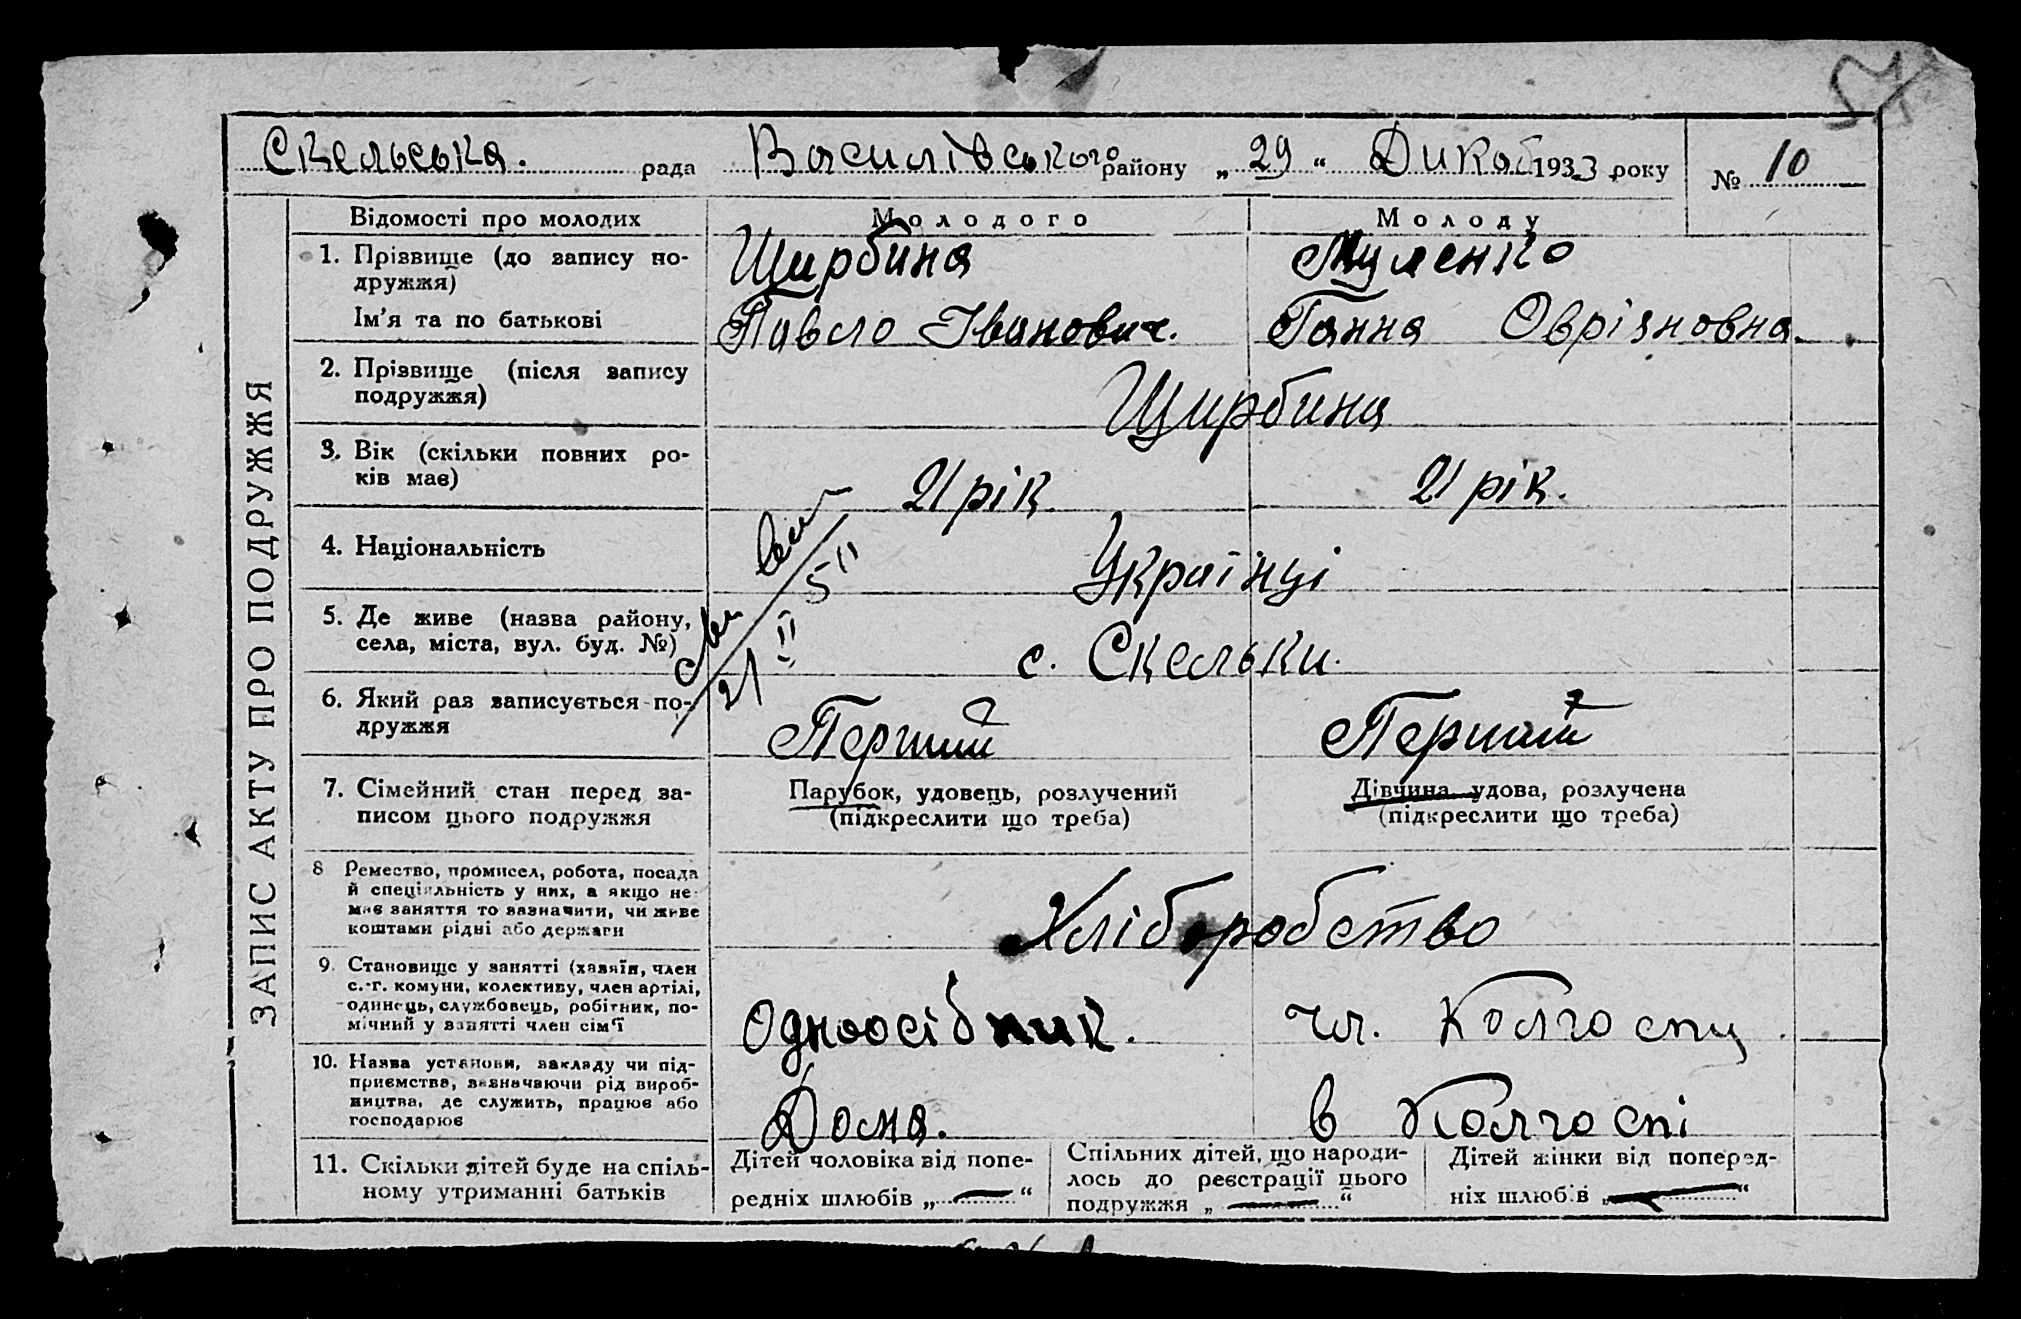 54
Скельська. рада Василівського району „ 29 “ Дикаб 1933 року № 10
ЗАПИС АКТУ ПРО ПОДРУЖЖЯ
Відомості про молодих Молодого Молоду
1. Прізвище (до запису по-
дружжя) Щирбина
Ім'я та по батькові Павло Іванович. Ганна
2. Прізвище (після запису
подружжя) Щирбина
3. Вік (скільки повних ро-
ків має) 21 рік 21 рік.
4. Національність Українці
5. Де живе (назва району,
села, міста, вул. буд. №) с. Скельки.
21/II 51
6. Який раз записується по-
дружжя Перший Перший
7. Сімейний стан перед за-
писом цього подружжя
Парубок, удовець, розлучений
(підкреслити що треба)
Дівчина, удова, розлучена
(підкреслити що треба)
8 Ремество, промисел, робота, посада
й спеціяльність у них, а якщо не
має заняття то зазначити, чи живе
коштами рідні або держави
Хліборобство
9. Становище у занятті (хазяїн, член
с.-г. комуни, колективу, член артілі,
одинець, службовець, робітник, по-
мічний у занятті член сім'ї
Одноосібник. чл. Колгоспу.
10. Назва установи, закладу чи під-
приємства, зазначаючи рід вироб-
ництва, де служить, працює або
господарює
Дома. в Колгоспі
11. Скільки дітей буде на спіль-
ному утриманні батьків
Дітей чоловіка від попе-
редніх шлюбів „ — “
Спільних дітей, що народи-
лось до реєстрації цього
подружжя „ — “
Дітей жінки від поперед-
ніх шлюбів „ — “